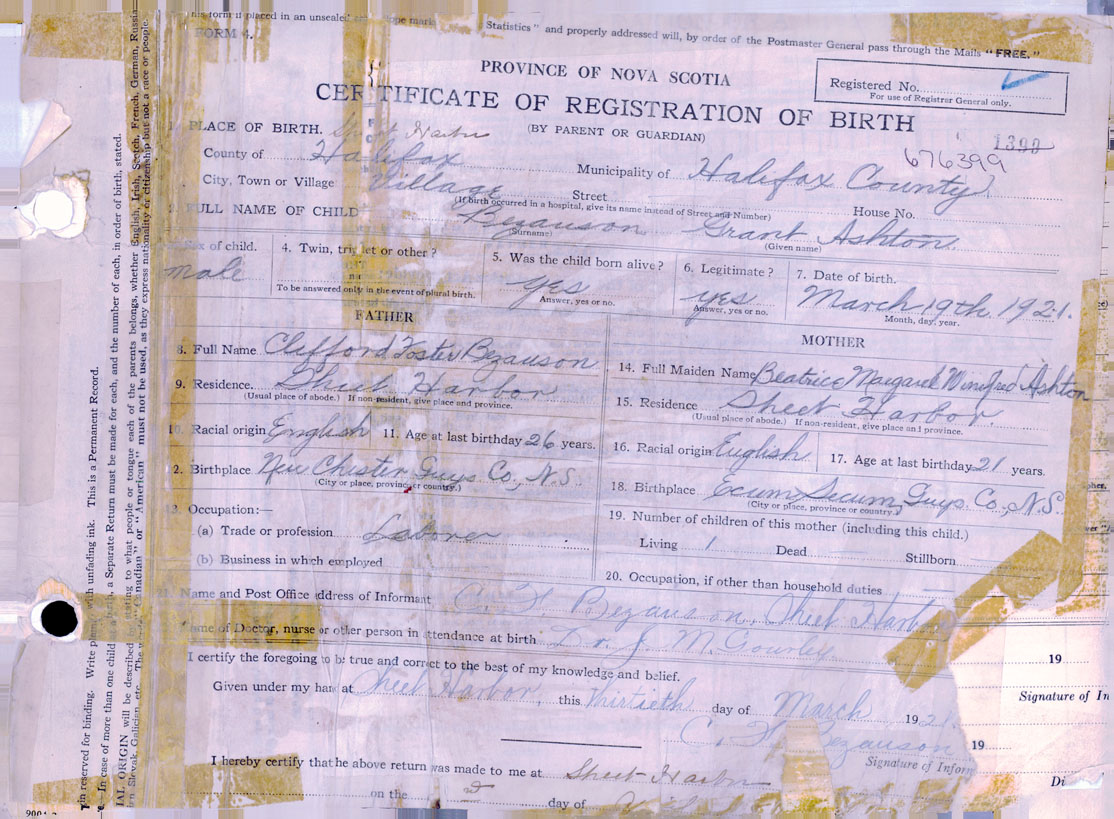 his form if placed in an unsealed envelope mark Statistics" and properly addressed will, by order of the Postmaster General pass through the Mails "FREE."
FORM 4.
PROVINCE OF NOVA SCOTIA
Registered No.
For use of Registrar General only.
CERTIFICATE OF REGISTRATION OF BIRTH
(BY PARENT OR GUARDIAN)
1300
676399
1. PLACE OF BIRTH. Sheet Harbor
County of Halifax Municipality of Halifax County
City, Town or Village Village Street House No.
(If birth occurred in a hospital, give its name instead of Street and Number)
2. FULL NAME OF CHILD Bezanson Grant Ashton
(Surname) (Given name)
Sex of child. male
4. Twin, triplet or other?
To be answered only in the event of plural birth.
5. Was the child born alive? yes
Answer, yes or no.
6. Legitimate? yes
Answer, yes or no.
7. Date of birth. March 19th 1921.
Month, day, year.
FATHER
8. Full Name Clifford Foster Bezanson
9. Residence. Sheet Harbor
(Usual place of abode.) If non-resident, give place and province.
10. Racial origin English 11. Age at last birthday 26 years.
2. Birthplace New Chester Guys Co., N.S.
(City or place, province or country.)
3. Occupation:—
(a) Trade or profession Laborer
(b) Business in which employed
MOTHER
14. Full Maiden Name Beatrice Margaret Winifred Ashton
15. Residence Sheet Harbor.
(Usual place of abode.) If non-resident, give place and province.
16. Racial origin English 17. Age at last birthday 21 years.
18. Birthplace Ecum Secum, Guys Co., N.S.
(City or place, province or country.)
19. Number of children of this mother (including this child.)
Living 1 Dead Stillborn
20. Occupation, if other than household duties
Name and Post Office address of Informant C. F. Bezanson, Sheet Harbor
Name of Doctor, nurse or other person in attendance at birth Dr. J. M. Gourley
I certify the foregoing to be true and correct to the best of my knowledge and belief.
Given under my hand at Sheet Harbor, this thirtieth day of March 1921
C. F. Bezanson
Signature of Inform
I hereby certify that he above return was made to me at Sheet Harbor
on the day of
19
Signature of In
19
Di
in reserved for binding. Write plainly with unfading ink. This is a Permanent Record.
In case of more than one child a birth, a Separate Return must be made for each, and the number of each, in order of birth, stated.
IAL ORIGIN will be described by stating to what people or tongue each of the parents belongs, whether English, Irish, Scotch, French, German, Russia
n Slovak, Galician, etc. The "Canadian" or "American" must not be used, as they express nationality or citizenship but not a race or people.